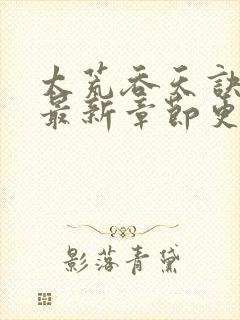 大荒吞天诀
最新章节更
影落青黛